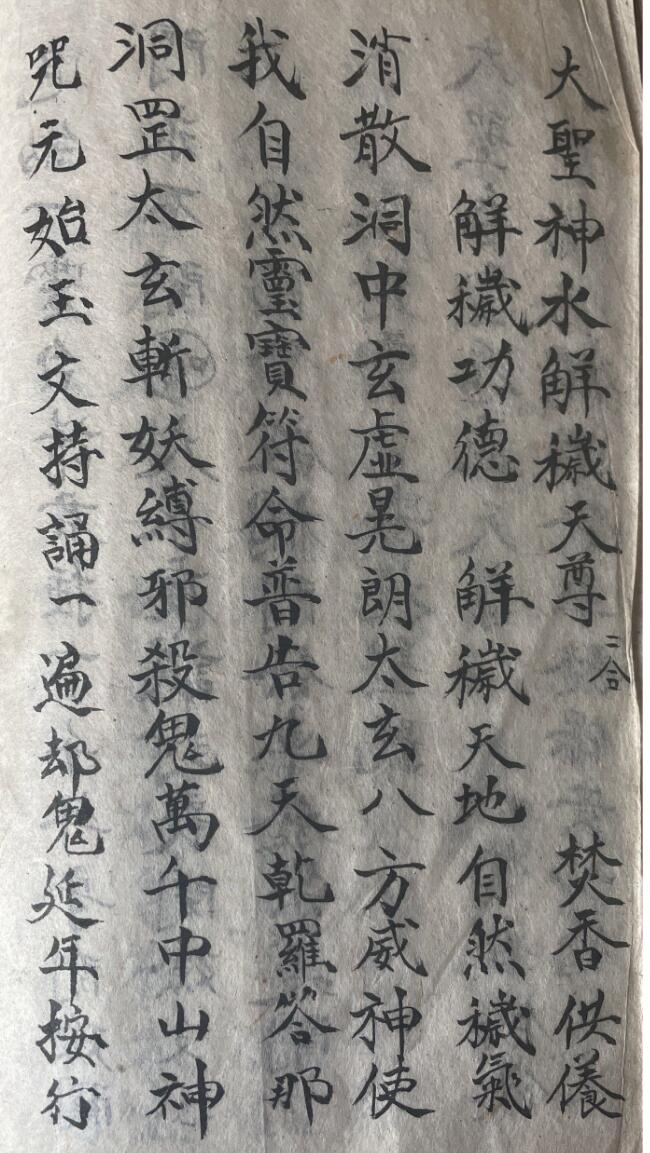 大聖神水解穢天尊 二合 焚香供養
解穢功德 解穢天地自然穢氣
消散洞中玄虛晃朗太玄八方威神使
我自然靈寶符命普告九天乾羅答那
洞罡太玄斬妖縛邪殺鬼萬千中山神
咒元始玉文持誦一遍却鬼延年按行